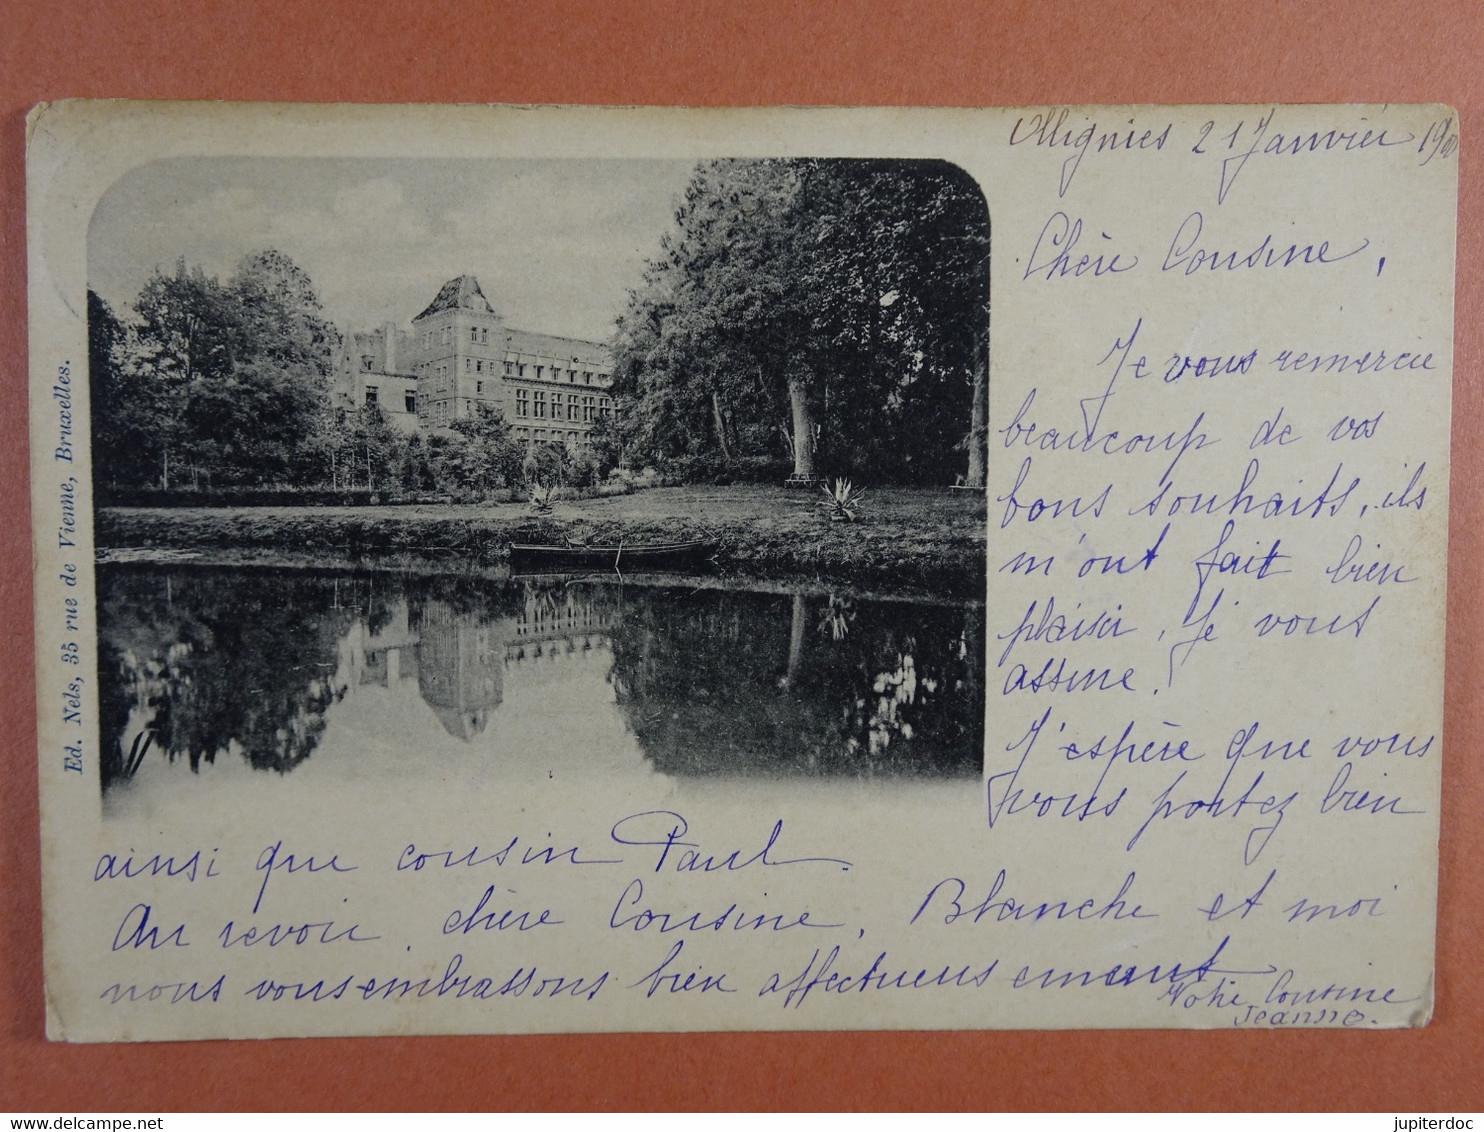 Ollignies 21 Janvier 1900
Chère Cousine,
Je vous remercie
beaucoup de vos
bons souhaits, ils
m'ont fait bien
plaisir, Je vous
assure.
J'espère que vous
vous portez bien
ainsi que cousin Paul.
Au revoir, chère Cousine, Blanche et moi
nous vous embrassons bien affectueusement
Votre Cousine
Jeanne.
Ed. Nels, 35 rue de Vienne, Bruxelles.
delcampe.net
jupiterdoc